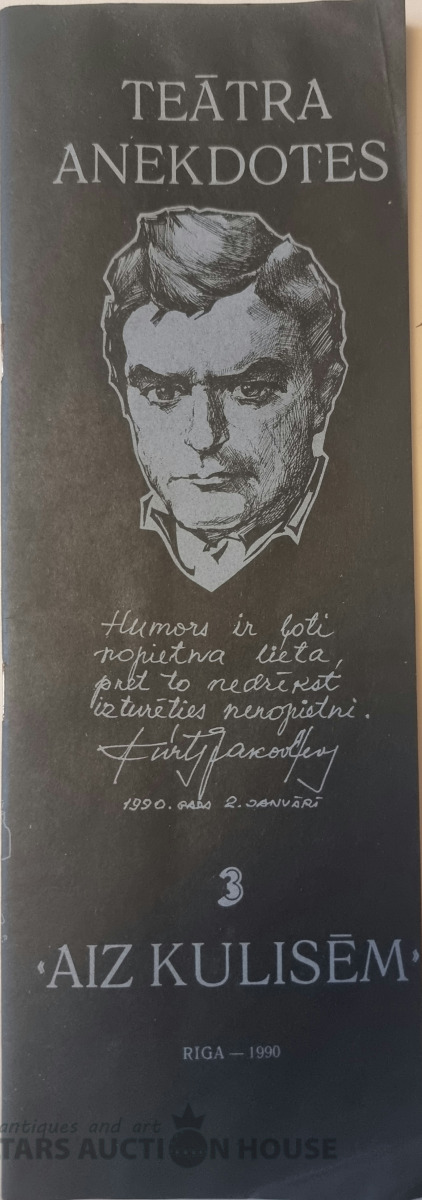 TEĀTRA
ANEKDOTES
Humors ir ļoti
nopietna lieta,
pret to nedrīkst
izturēties nenopietni.
1990. gada 2. janvārī
3
‹AIZ KULISĒM›
RIGA — 1990
antiques and art
TARS AUCTION HOUSE